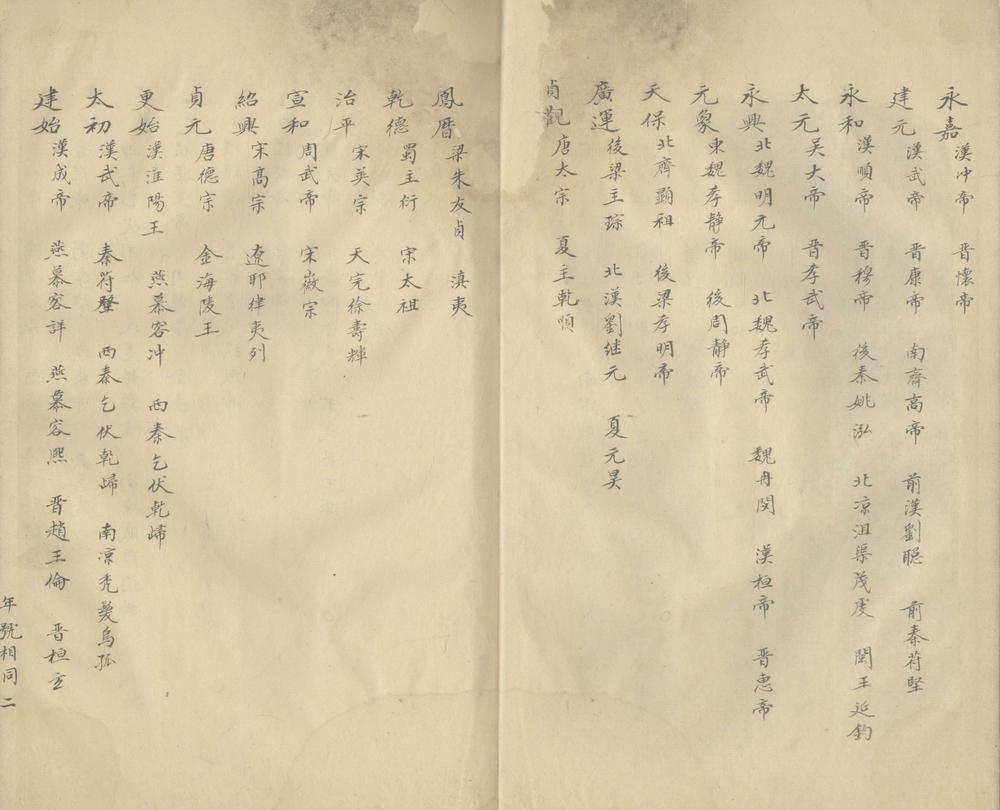 永嘉 漢冲帝 晋懷帝
建元 漢武帝 晋康帝 南齊高帝 前漢劉聰 前秦苻堅
永和 漢順帝 晋穆帝 後秦姚泓 北凉沮渠茂虔 閩王延鈞
太元 吴大帝 晋孝武帝
永興 北魏明元帝 北魏孝武帝 魏冉閔 漢桓帝 晋惠帝
元象 東魏孝静帝 後周静帝
天保 北齊顕祖 後梁孝明帝
廣運 後梁主琮 北漢劉继元 夏元昊
貞觀 唐太宗 夏主乾順
鳳曆 梁朱友貞 滇夷
乾德 蜀主衍 宋太祖
治平 宋英宗 天完徐壽輝
宣和 周武帝 宋徽宗
紹興 宋髙宗 遼耶律夷列
貞元 唐德宗 金海陵王
更始 漢淮陽王 燕慕容冲 西秦乞伏乾歸
太初 漢武帝 秦苻堅 西秦乞伏乾歸 南凉秃髮烏孤
建始 漢成帝 燕慕容詳 燕慕容熙 晋趙王倫 晋桓玄
年號相同 二